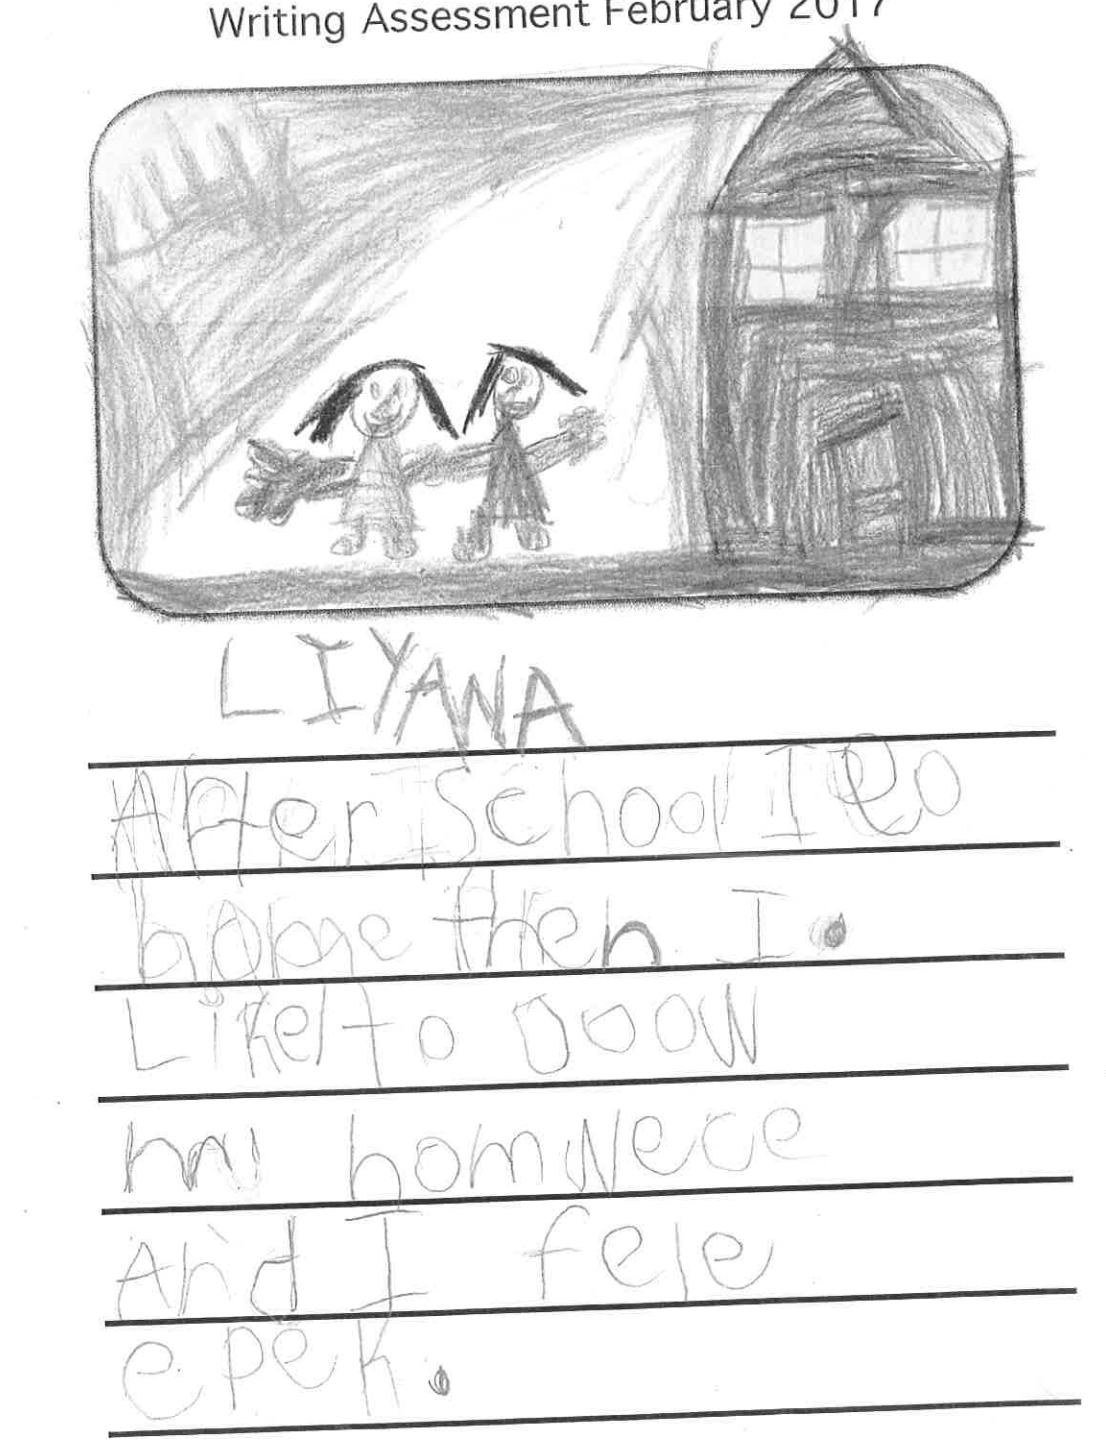 Writing Assessment February 2017
LIYANA
After School I Go
home then I
Like to Doow
my homwece
And I fele
epek.